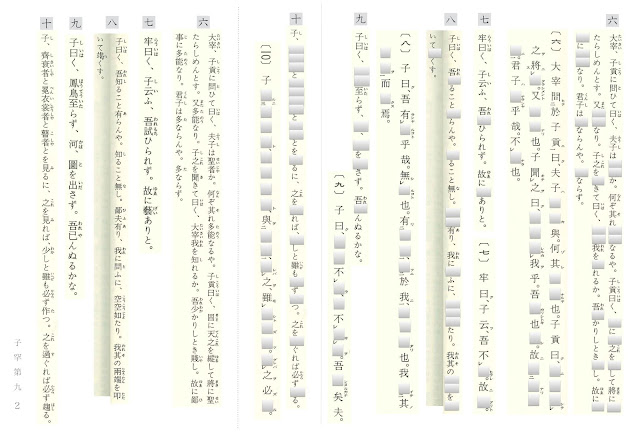 六
大宰、子貢に問ひて曰く、夫子は か。何ぞ なるや。子貢曰く、 に 之を して將に
たらしめんとす。又 なり。子之を きて曰く、 我を れるか。吾 かりしとき し。故に
に なり。君子は ならんや。 ならず。
〔六〕 大宰問於子貢曰、夫子 與。何其 也。子貢曰、
之將 又 也。子聞之曰、 我乎。吾 也 。故
。君子 乎哉。不 也。
七
牢曰く、子云ふ、吾 ひられず。故に ありと。
〔七〕 牢曰、子云、吾不 故 。
八
子曰く、吾 ること らんや。 ること無し。 有り、我に ふに、 たり。我其の を
いて す。
〔八〕 子曰、吾有 乎哉。無 也。有 、 於我、 也。我 其
而 焉。
九
子曰く、 至らず、 、 を さず。吾 んぬるかな。
〔九〕 子曰、 不 、 不 。吾 矣夫。
十
子、 と と とを るに、之を れば、 しと雖も ず つ。之を ぐれば必ず る。
〔一〇〕 子 與 、 之、雖 。 之必 。
六
大宰、子貢に問ひて曰く、夫子は聖者か。何ぞ其れ多能なるや。子貢曰く、固に天之を縱して將に聖
たらしめんとす。又多能なり。子之を聞きて曰く、大宰我を知れるか。吾少かりしとき賤し。故に鄙
事に多能なり。君子は多ならんや。多ならず。
七
牢曰く、子云ふ、吾試ひられず。故に藝ありと。
八
子曰く、吾知ること有らんや。知ること無し。鄙夫有り、我に問ふに、空空如たり。我其の兩端を叩
いて竭くす。
九
子曰く、鳳鳥至らず、河、圖を出さず。吾已んぬるかな。
十
子、齊衰者と冕衣裳者と瞽者とを見るに、之を見れば、少しと雖も必ず作つ。之を過ぐれば必ず趨る。
子罕第九 2